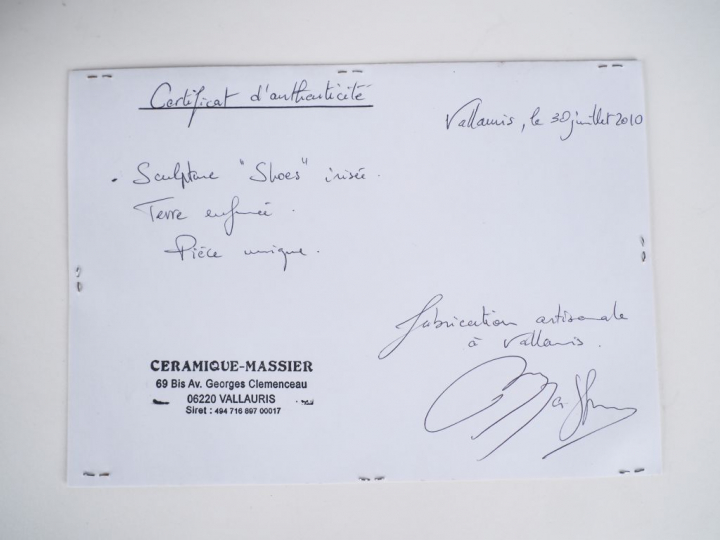 Certificat d'authenticité
Vallauris, le 30 juillet 2010
• Sculpture "Shoes" irisée.
Terre enfumée.
Pièce unique.
Fabrication artisanale
à Vallauris.
CERAMIQUE-MASSIER
69 Bis Av. Georges Clemenceau
06220 VALLAURIS
Siret : 494 716 897 00017